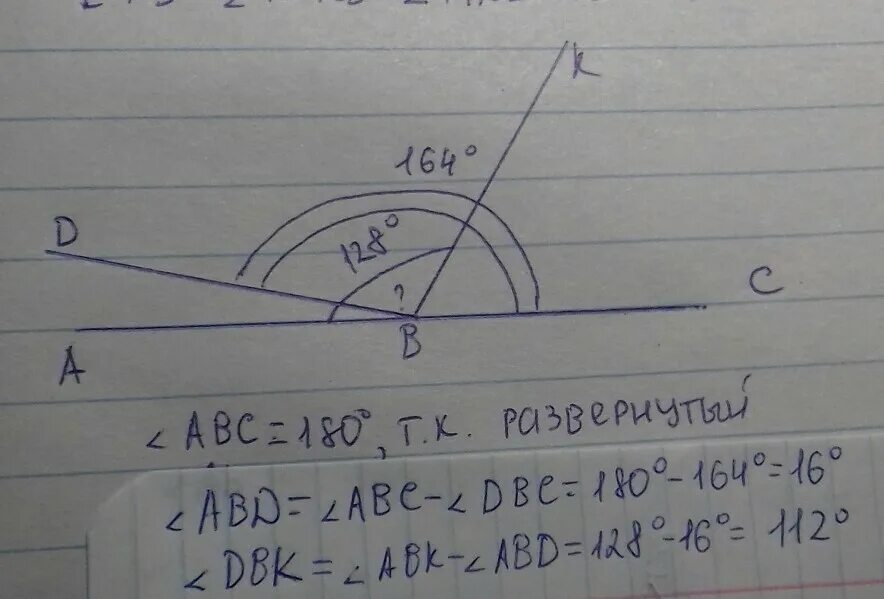 K
164°
D
128°
?
C
B
A
∠ABC=180°, т.к. развернутый
∠ABD=∠ABC-∠DBC=180°-164°=16°
∠DBK=∠ABK-∠ABD=128°-16°=112°